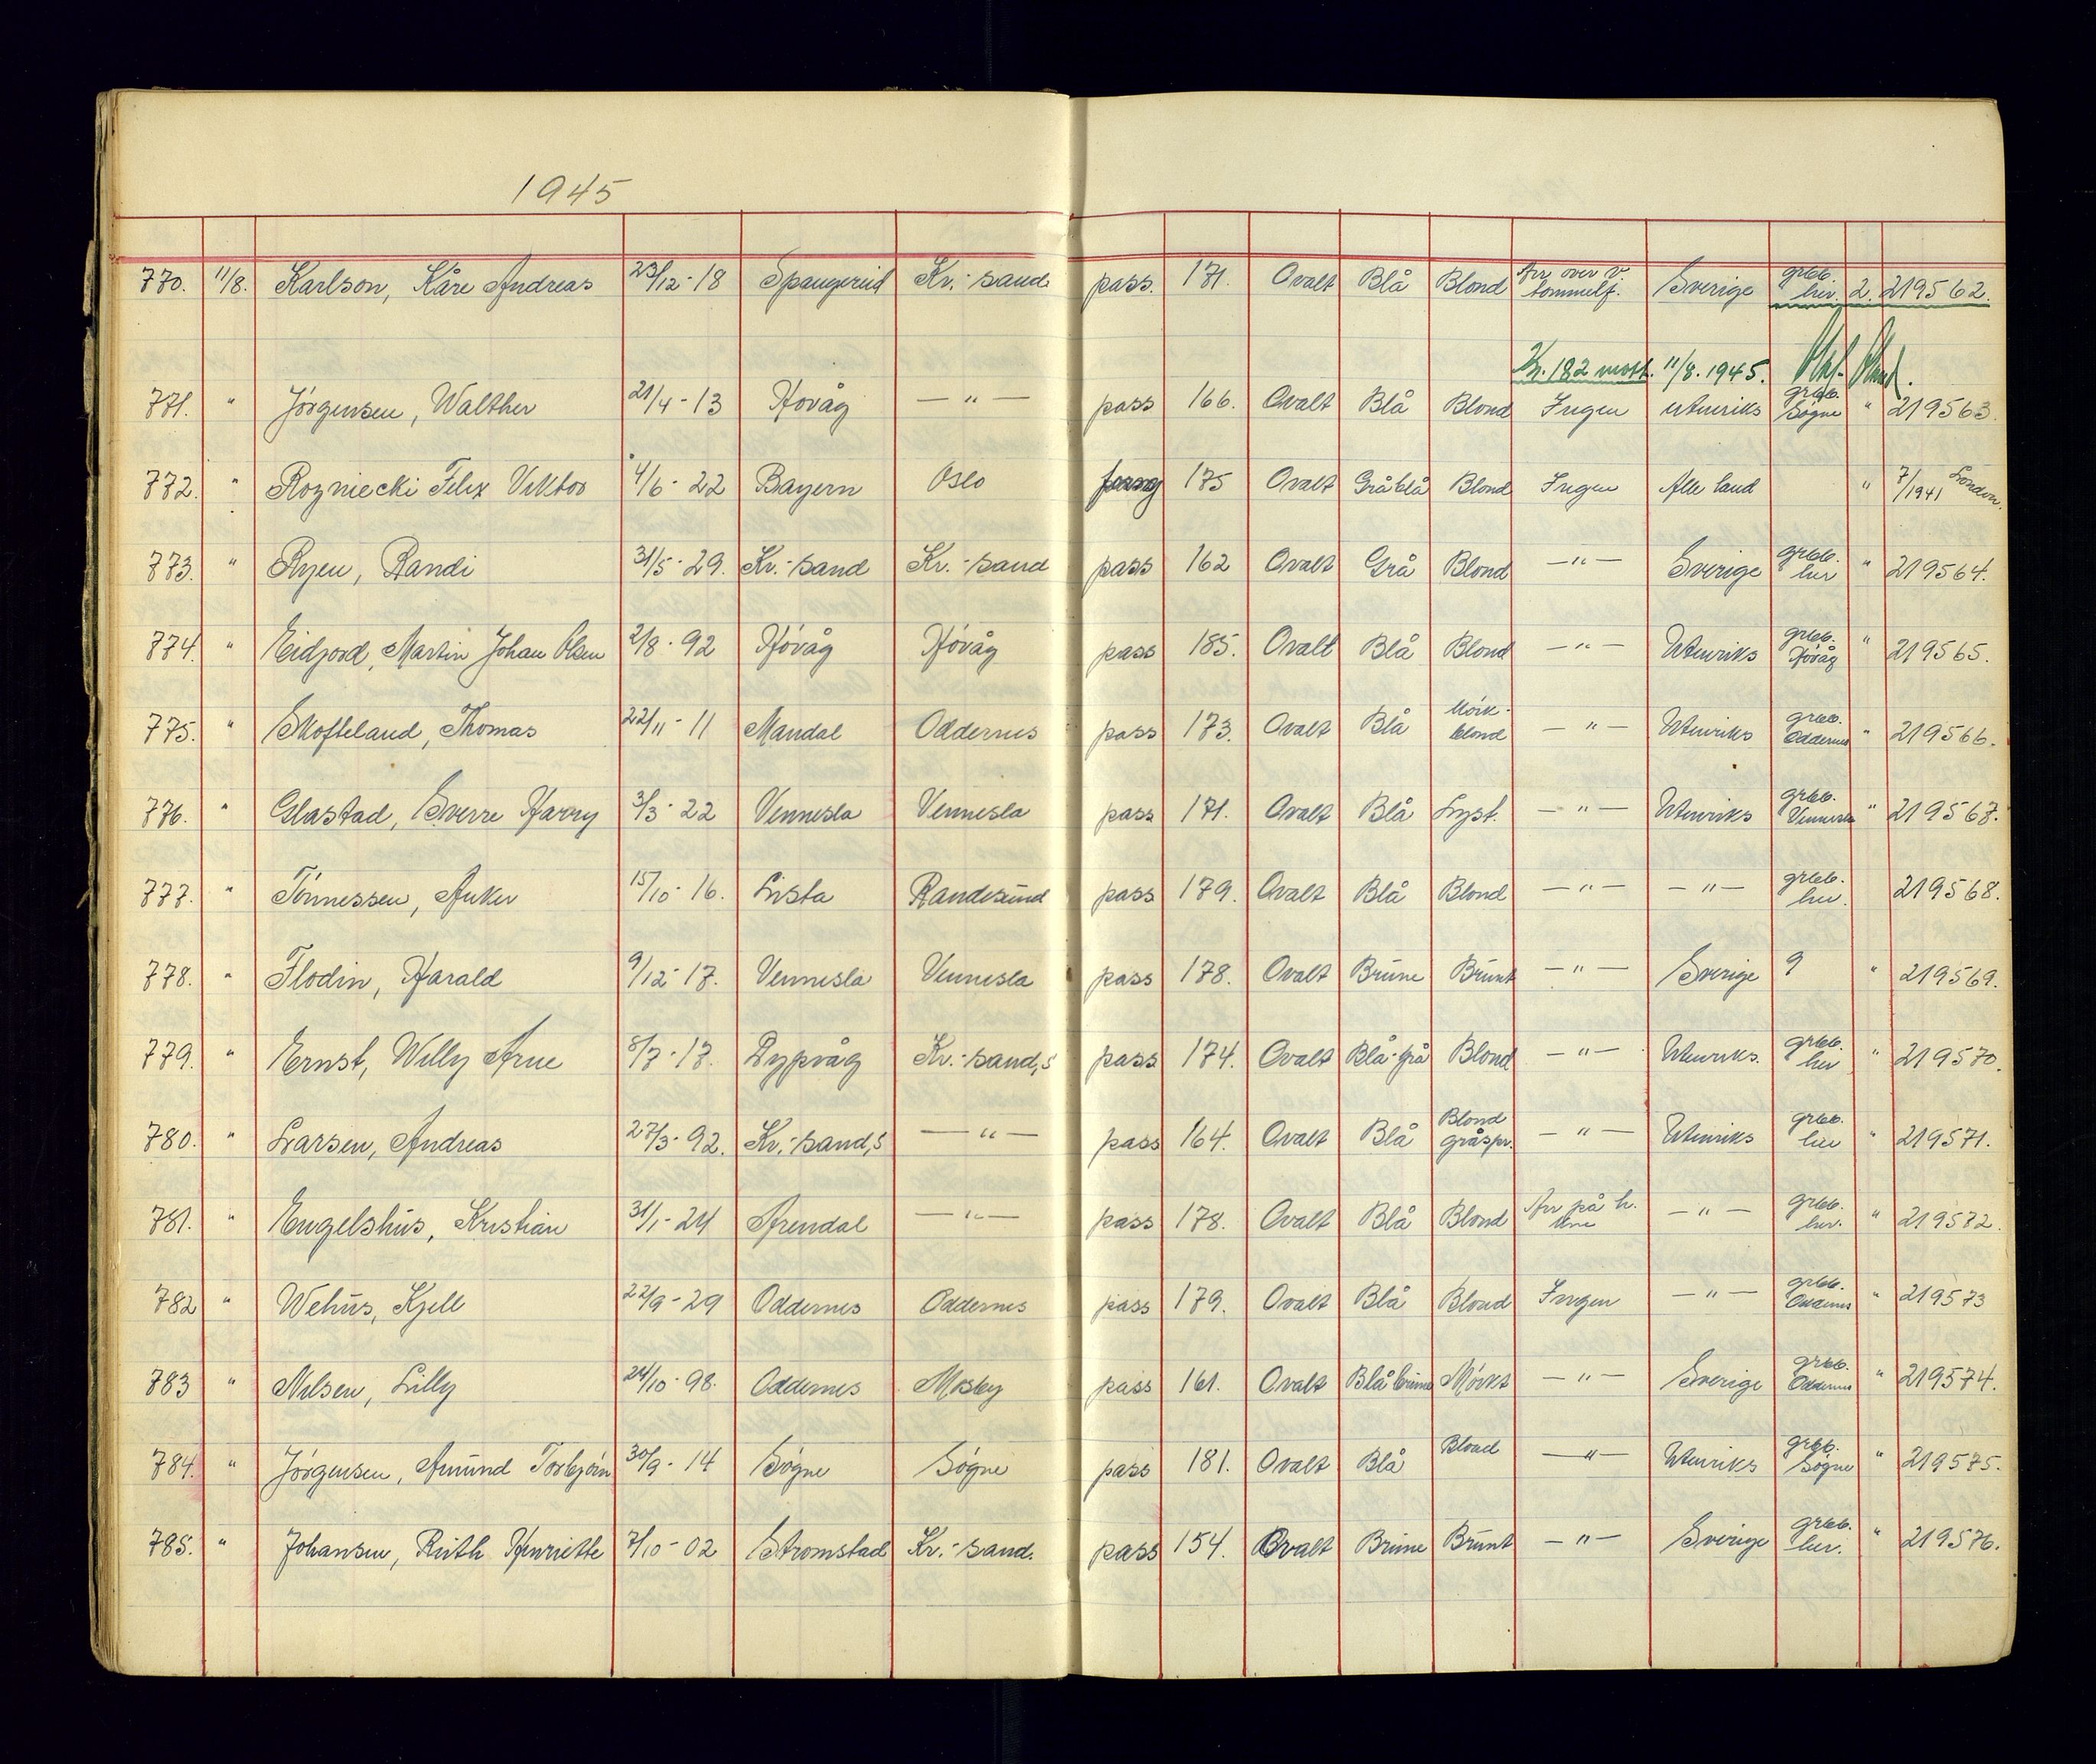 1945
770. 11/8. Karlson, Kåre Andreas 23/12-18 Spangereid Kr.-sand. pass. 171. Ovalt Blå Blond Arr over v. tommelf. Sverige grbb. her. 2. 219562.
Kr. 182 mott. 11/8. 1945.
771. " Jörgensen, Walther 21/4-13 Hövåg —"— pass 166. Ovalt Blå Blond Ingen Utenriks grbb. Søgne " 219563.
772. " Rozniecki Felix Viktor 4/6-22 Bayern Oslo 175 Ovalt Gråblå Blond Ingen Alle land " 7/1941 London.
773. " Ryen, Randi 31/5-29. Kr.-sand Kr.-sand pass 162 Ovalt Grå Blond —"— Sverige grbb. her " 219564.
774. " Eidjord, Martin Johan Olsen 2/8-92 Hövåg Hövåg pass 185. Ovalt Blå Blond —"— Utenriks grbb. Hövåg " 219565.
775. " Skofteland, Thomas 22/11-11 Mandal Oddernes pass 173. Ovalt Blå Mörk-blond —"— Utenriks grbb. Oddernes " 219566.
776. " Glastad, Sverre Harry 3/3-22 Vennesla Vennesla pass 171. Ovalt Blå Lyst. —"— Utenriks grbb. Vennesla " 219567.
777. " Tönnessen, Anker 15/10-16. Lista Randesund pass 179. Ovalt Blå Blond —"— —"— grbb. her. 219568.
778. " Flodin, Harald 9/12-17. Vennesla Vennesla pass 178. Ovalt Brune Brunt —"— Sverige 9 " 219569.
779. " Ernst, Willy Arne 8/7-17. Dypvåg Kr.-sand,S pass 174. Ovalt Blå-grå Blond —"— Utenriks. grbb. her " 219570.
780. " Larsen, Andreas 27/3-92. Kr.-sand,S —"— pass 164. Ovalt Blå Blond gråspr. —"— Utenriks grbb. her " 219571.
781. " Engelshus, Kristian 31/1-24 Arendal —"— pass 178. Ovalt Blå Blond Arr på h. kne —"— grbb. her. " 219572.
782 " Wehus, Kjell 22/9-29 Oddernes Oddernes pass 179. Ovalt Blå Blond Ingen —"— grbb. Oddernes " 219573
783 " Nilsen, Lilly 24/10-98. Oddernes Mosby pass 161. Ovalt Blåbrune Mörkt —"— Sverige grbb. Oddernes " 219574.
784. " Jörgensen, Amund Torbjörn 30/9-14 Søgne Søgne pass 181. Ovalt Blå Blond —"— Utenriks grbb. Søgne " 219575.
785. " Johansen, Ruth Henriette 7/10-02 Strömstad Kr.-sand. pass 154. Ovalt Brune Brunt —"— Sverige grbb. her. " 219576.